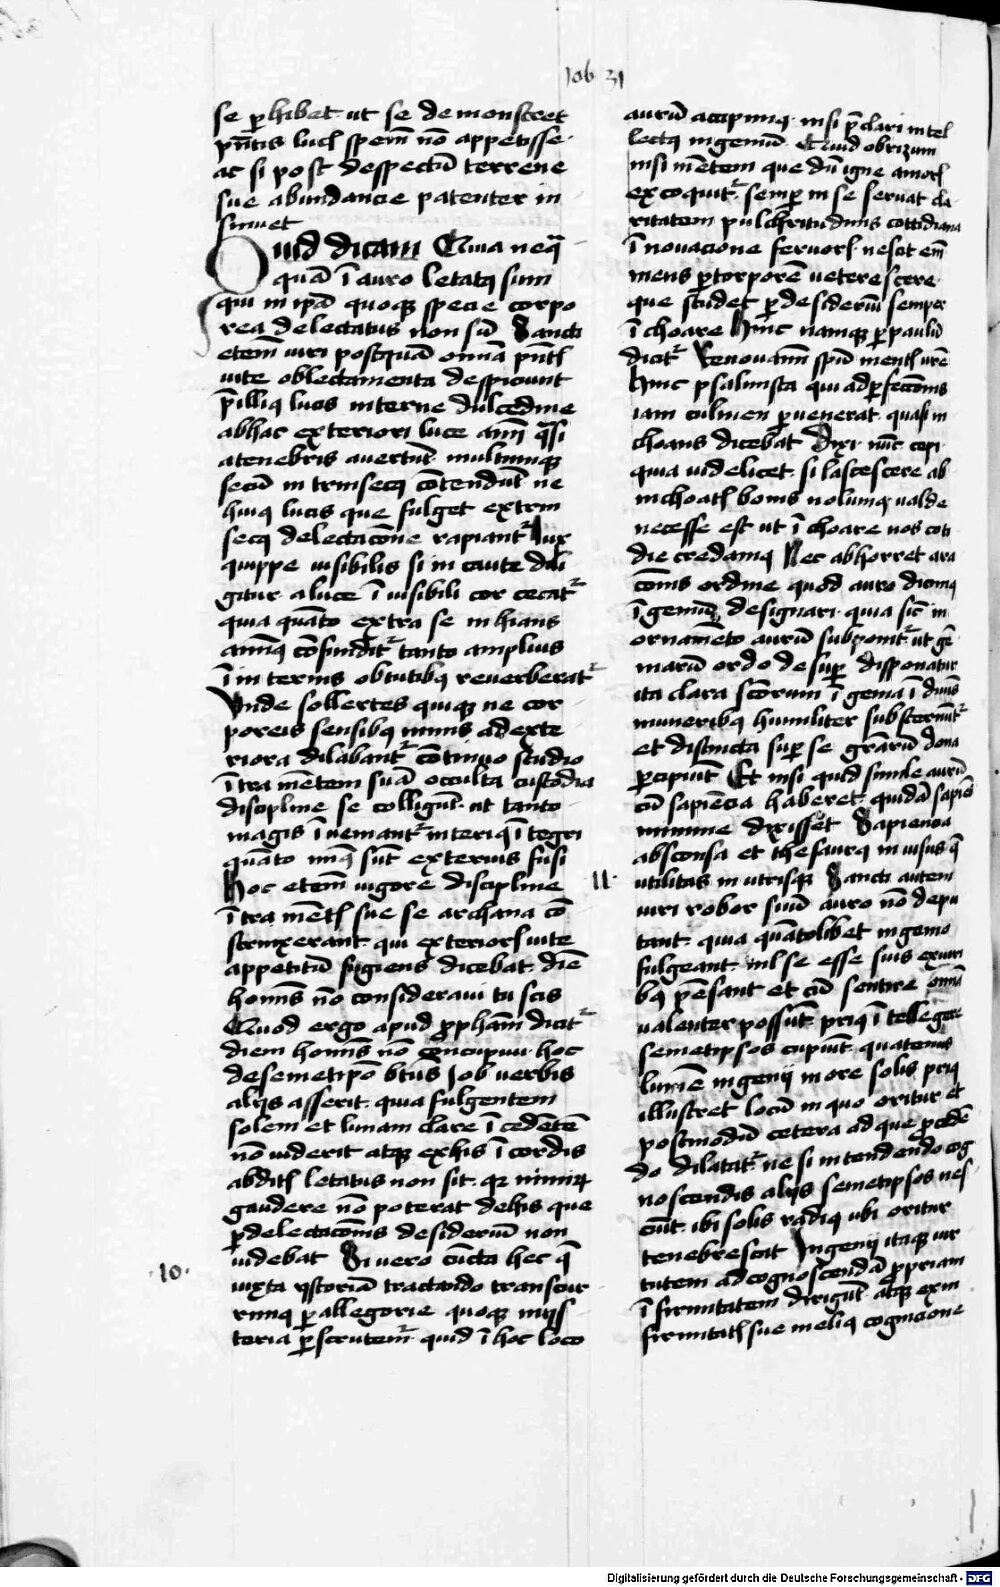 Iob 31
se ꝑhibet ut se demonstret
pñtis lucꝭ speꝫ nō appetisse·
ac si post despectū terrene
sue abundancie patenter in
sinuet
Quid dicam Quia neqꝫ
quā ī auro letatꝰ sum
qui in ip̄a quoqꝫ specie corpo
rea delectatus non sū Sancti
eteni᷒ uiri postquā om̄ia pn̄tꝭ
uite oblectamenta despiciunt
p̄ illiꝰ lucis interne dulcedine
ab hac exteriori luce acsi quasi
a tenebris auertunt multumqꝫ
secū intrinsecꝰ cōtendūt ne
huiꝰ lucis que fulget extrin
secꝰ delectacōne rapiant᷒ lux
quippe uisibilis si incaute dili
gitur a luce īuisibili cor cecat᷒
quia quāto extra se inhians
animꝰ cōfundit᷒ tanto amplius
ī internis obtutibꝰ reuerberat᷒
Unde sollertes quiqꝫ ne cor
poreis sensibꝰ nimis ad exte
riora dilabant᷒ cōtinuo studio
ītra mētem suā occulta custodia
discipline se colligūt ut tanto
magis īueniant᷒ interiꝰ ītegri
quāto minꝰ sūt exterius fusi
Hoc eteni᷒ uigore discipline
ītra mētꝭ sue se archana cō
strinxerant qui exteriorꝭ uite
appetitū fugiens dicebat diē
homīs nō consideraui tu scis
Quod ergo apud ꝓphām dicit᷒
diem homīs nō cōncupiui· hoc
de semetipo btūs Iob uerbis
alijs asserit quia fulgentem
solem et lunam clare īcedētē
nō uiderit atqꝫ ex his ī cordis
abditꝭ letatus non sit· qꝛ nimiꝝ
gaudere nō poterat de his que
ꝑ delectacōnis desideriū non
uidebat Si uero cūcta hec q̄
·10·
iuxta ystoriā tractando transcur
rimꝰ ꝑ allegorie quoqꝫ mijs
teria ꝑscrutem᷒ quid ī hoc loco
aurū accipimꝰ nisi p̄clari intel
lectꝰ ingeniū Quid obrizum
nisi mētem que dū igne amorꝭ
excoquit᷒ semꝑ in se seruat cla
ritatem pulchritudinis cottidiana
īnouacione feruorꝭ nescit eni᷒
mens ꝑ torporē ueterescere·
que studet ꝑ desideriū semper
īchoare Hinc namqꝫ ꝑ paulū
dicit᷒ Renouamī spū mentꝭ ure᷒
Hinc psalmista qui ad ꝑfeccōnis
iam culmen ꝑuenerat quasi in
choans dicebat Dixi· nūc cepi·
quia uidelicet si lascescere ab
inchoatꝭ bonis nolumꝰ ualde
necesse est ut īchoare nos coti
die credamꝰ Nec abhorret a ra
cōnis ordine quod auro dicimꝰ
īgeniū designari· quia sic̄ in
ornamēto aurū subponit᷒ ut gē
marū ordo desuꝑ disponatur
ita clara scōrum īgenia ī diuīs
muneribꝰ humiliter substernūt᷒
et distincta suꝑ se grārū dona
ꝑcipiūt Et nisi quid simile aurū
cū sapiēcia haberet· quidā sapiēs
minime dixisset Sapiencia
absconsa et thesaurꝰ inuisus q̄
·11·
utilitas in utrisqꝫ Sancti autem
uiri robor suū auro nō depu
tant quia quātolibet ingenio
fulgeant nil se esse suis exuiri
bꝰ pēsant et cū sentire om̄ia
ualenter possūt priꝰ ītellegere
semetipsos cupiūt quatenus
lumē ingenij more solis priꝰ
illustret locū in quo oritur et
postmodū cetera ad que ꝓcedē
do dilatat᷒ ne si intendendo cog
noscendis alijs semetipsos nes
ciūt ibi solis radiꝰ ubi oritur
tenebrescat Ingenij itaqꝫ uir
tutem ad cognoscendā ꝓpriam
īfirmitatem dirigūt atqꝫ ex in
firmitatꝭ sue meliꝰ cognicione